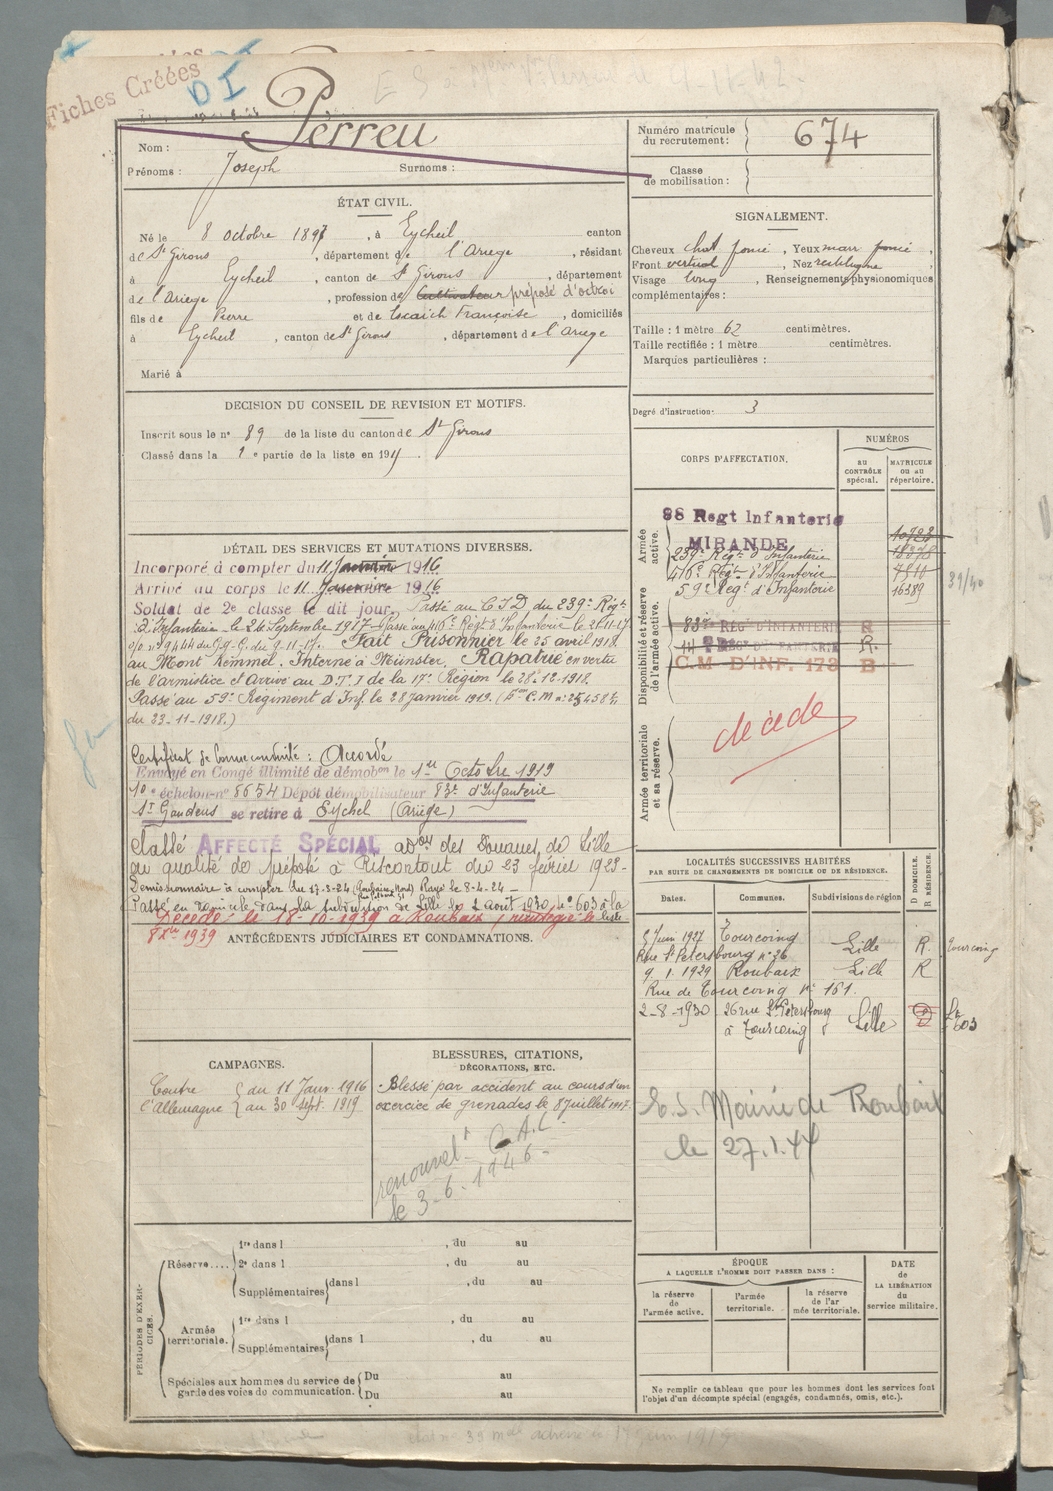 Fiches Créées
DI
Perreu
Nom :
Prénoms : Joseph Surnoms :
Numéro matricule du recrutement : 674
Classe de mobilisation :
ÉTAT CIVIL.
Né le 8 octobre 1897, à Eycheil canton
de St Girons, département de l'Ariège, résidant
à Eycheil, canton de St Girons, département
de l'Ariège, profession de Cultivateur préposé d'octroi
fils de Pierre et de Escaich Françoise, domiciliés
à Eycheil, canton de St Girons, département de l'Ariège
Marié à
SIGNALEMENT.
Cheveux chat foncé, Yeux marr foncé,
Front vertical, Nez rectiligne,
Visage long, Renseignements physionomiques
complémentaires :
Taille : 1 mètre 62 centimètres.
Taille rectifiée : 1 mètre centimètres.
Marques particulières :
Degré d'instruction : 3
DECISION DU CONSEIL DE REVISION ET MOTIFS.
Inscrit sous le n° 89 de la liste du canton de St Girons
Classé dans la 1e partie de la liste en 191
CORPS D'AFFECTATION.
NUMÉROS
AU CONTRÔLE spécial.
MATRICULE OU AU répertoire.
Armée active.
88 Regt Infanterie
MIRANDE
239e Régt d'Infanterie
416e Régt d'Infanterie
59e Régt d'Infanterie 16389
Disponibilité et réserve de l'armée active.
83e RÉGt D'INFANTERIE R
RÉGt D'INFANTERIE R.
C.M. D'INF. 178 B
31/40
Armée territoriale et sa réserve.
décédé
DÉTAIL DES SERVICES ET MUTATIONS DIVERSES.
Incorporé à compter du 11 Janvier 1916
Arrivé au corps le 11 Janvier 1916
Soldat de 2e classe le dit jour, Passé au C I D du 239e Régt
d'Infanterie le 26 Septembre 1917 Passé au 416e Régt d'Infanterie le 21-11-17
n° 9444 du G.Q.G. du 9-11-17. Fait Prisonnier le 25 avril 1918
au Mont Kemmel. Interné à Münster, Rapatrié en vertu
de l'armistice et Arrivé au D.T.I de la 17e Région le 28-12-1918.
Passé au 59e Régiment d'Inf. le 28 janvier 1919.
du 23-11-1918.)
Certificat de bonne conduite : Accordé
Envoyé en Congé illimité de démobon le 1er Octobre 1919
10e échelon n° 8654 Dépot démobilisateur 83e d'Infanterie
St Gaudens se retire à Eychel (Ariège)
Classé AFFECTÉ SPÉCIAL aon des Douanes de Lille
en qualité de préposé à Riscontout du 23 février 1923-
Demissionnaire à compter du 17-3-24 Rayé le 8-4-24-
Passé en domicile dans la subdivision de Lille le 2 Août 1930, n° 603 à la
Décédé : le 18-10-1939 à Roubaix,
1939
ANTÉCÉDENTS JUDICIAIRES ET CONDAMNATIONS.
LOCALITÉS SUCCESSIVES HABITÉES
PAR SUITE DE CHANGEMENTS DE DOMICILE OU DE RÉSIDENCE.
D DOMICILE. R RÉSIDENCE.
Dates. Communes. Subdivisions de région
5 Juin 1927 Tourcoing Lille R. Tourcoing
Rue St Petersbourg n° 26
9.1.1929 Roubaix Lille R
Rue de Tourcoing n° 161.
2-8-1930 26 rue St Petersbourg
à Tourcoing Lille D 603
E.S. Mairie de Roubaix
le 27.1.44
CAMPAGNES.
Contre l'Allemagne { du 11 Janv. 1916
au 30 sept. 1919
BLESSURES, CITATIONS,
DÉCORATIONS, ETC.
Blessé par accident au cours d'un
exercice de grenades le 8 Juillet 1917.
renouvelt C.A.C.
le 3-6-1946-
PÉRIODES D'EXERCICES.
Réserve.... 1re dans l , du au
2e dans l , du au
Supplémentaires dans l , du au
Armée territoriale. 1re dans l , du au
Supplémentaires dans l , du au
Spéciales aux hommes du service de garde des voies de communication. Du au
Du au
ÉPOQUE
A LAQUELLE L'HOMME DOIT PASSER DANS :
la réserve de l'armée active.
l'armée territoriale.
la réserve de l'ar mée territoriale.
DATE de LA LIBÉRATION du service militaire.
Ne remplir ce tableau que pour les hommes dont les services font
l'objet d'un décompte spécial (engagés, condamnés, omis, etc.).